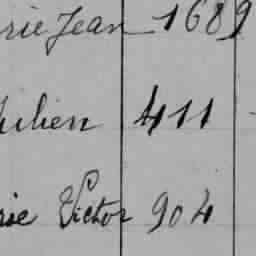 rie Jean 1689
Julien 411
rie Victor 904